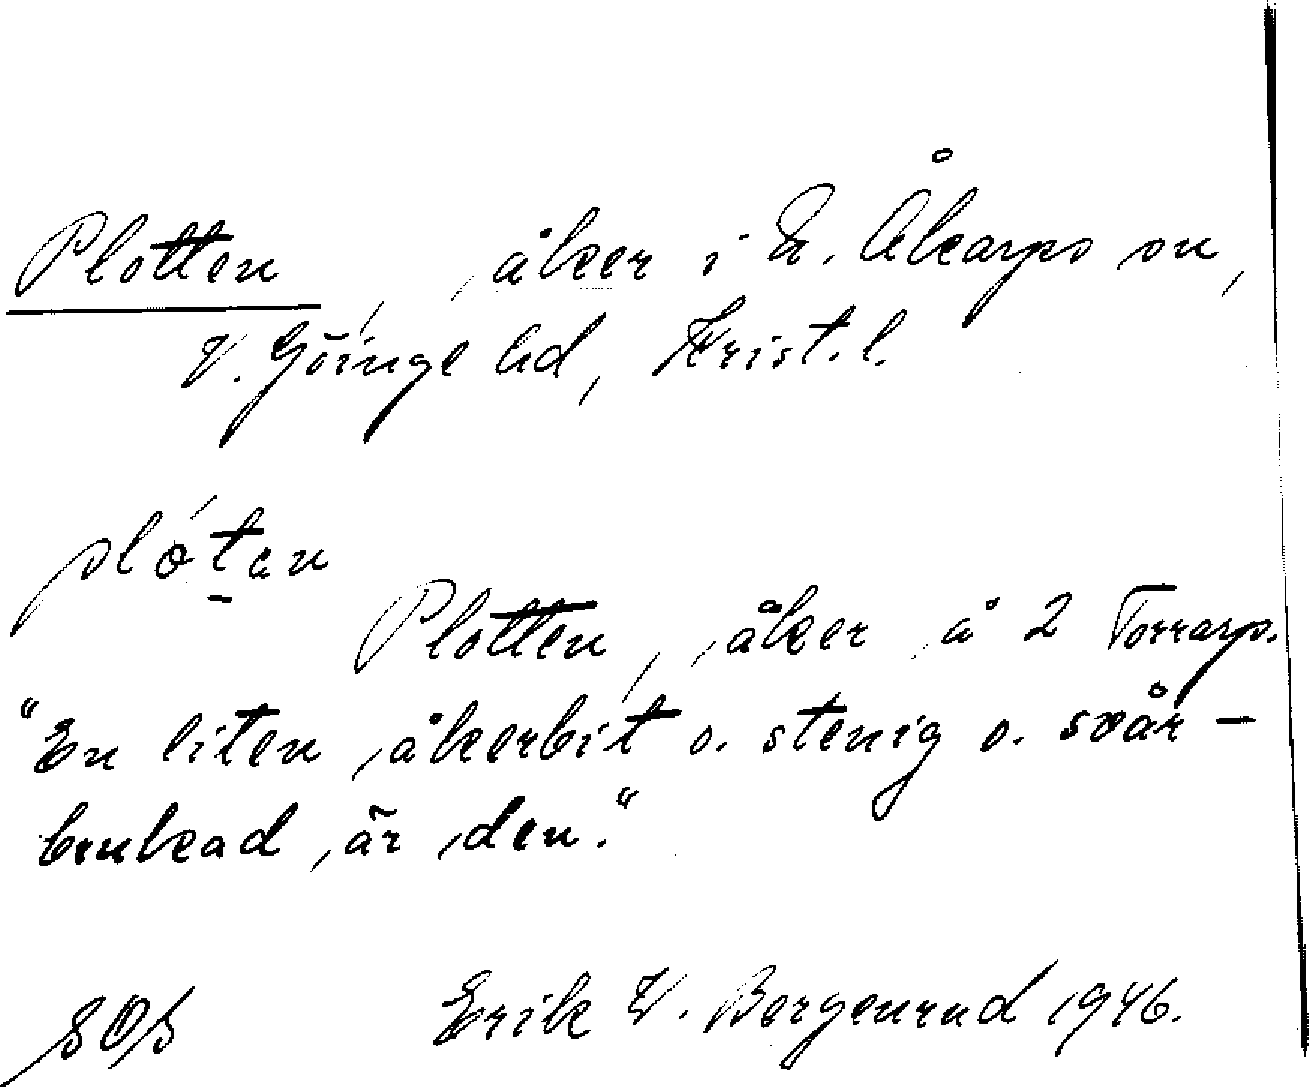 Plotten, åker i Ö. Åkarps sn,
V. Göinge hd, Krist. l.
plótan
Plotten, åker å 2 Torrarp.
"En liten åkerbit o. stenig o. svår-
brukad är den."
Erik W. Bergenrud 1946.